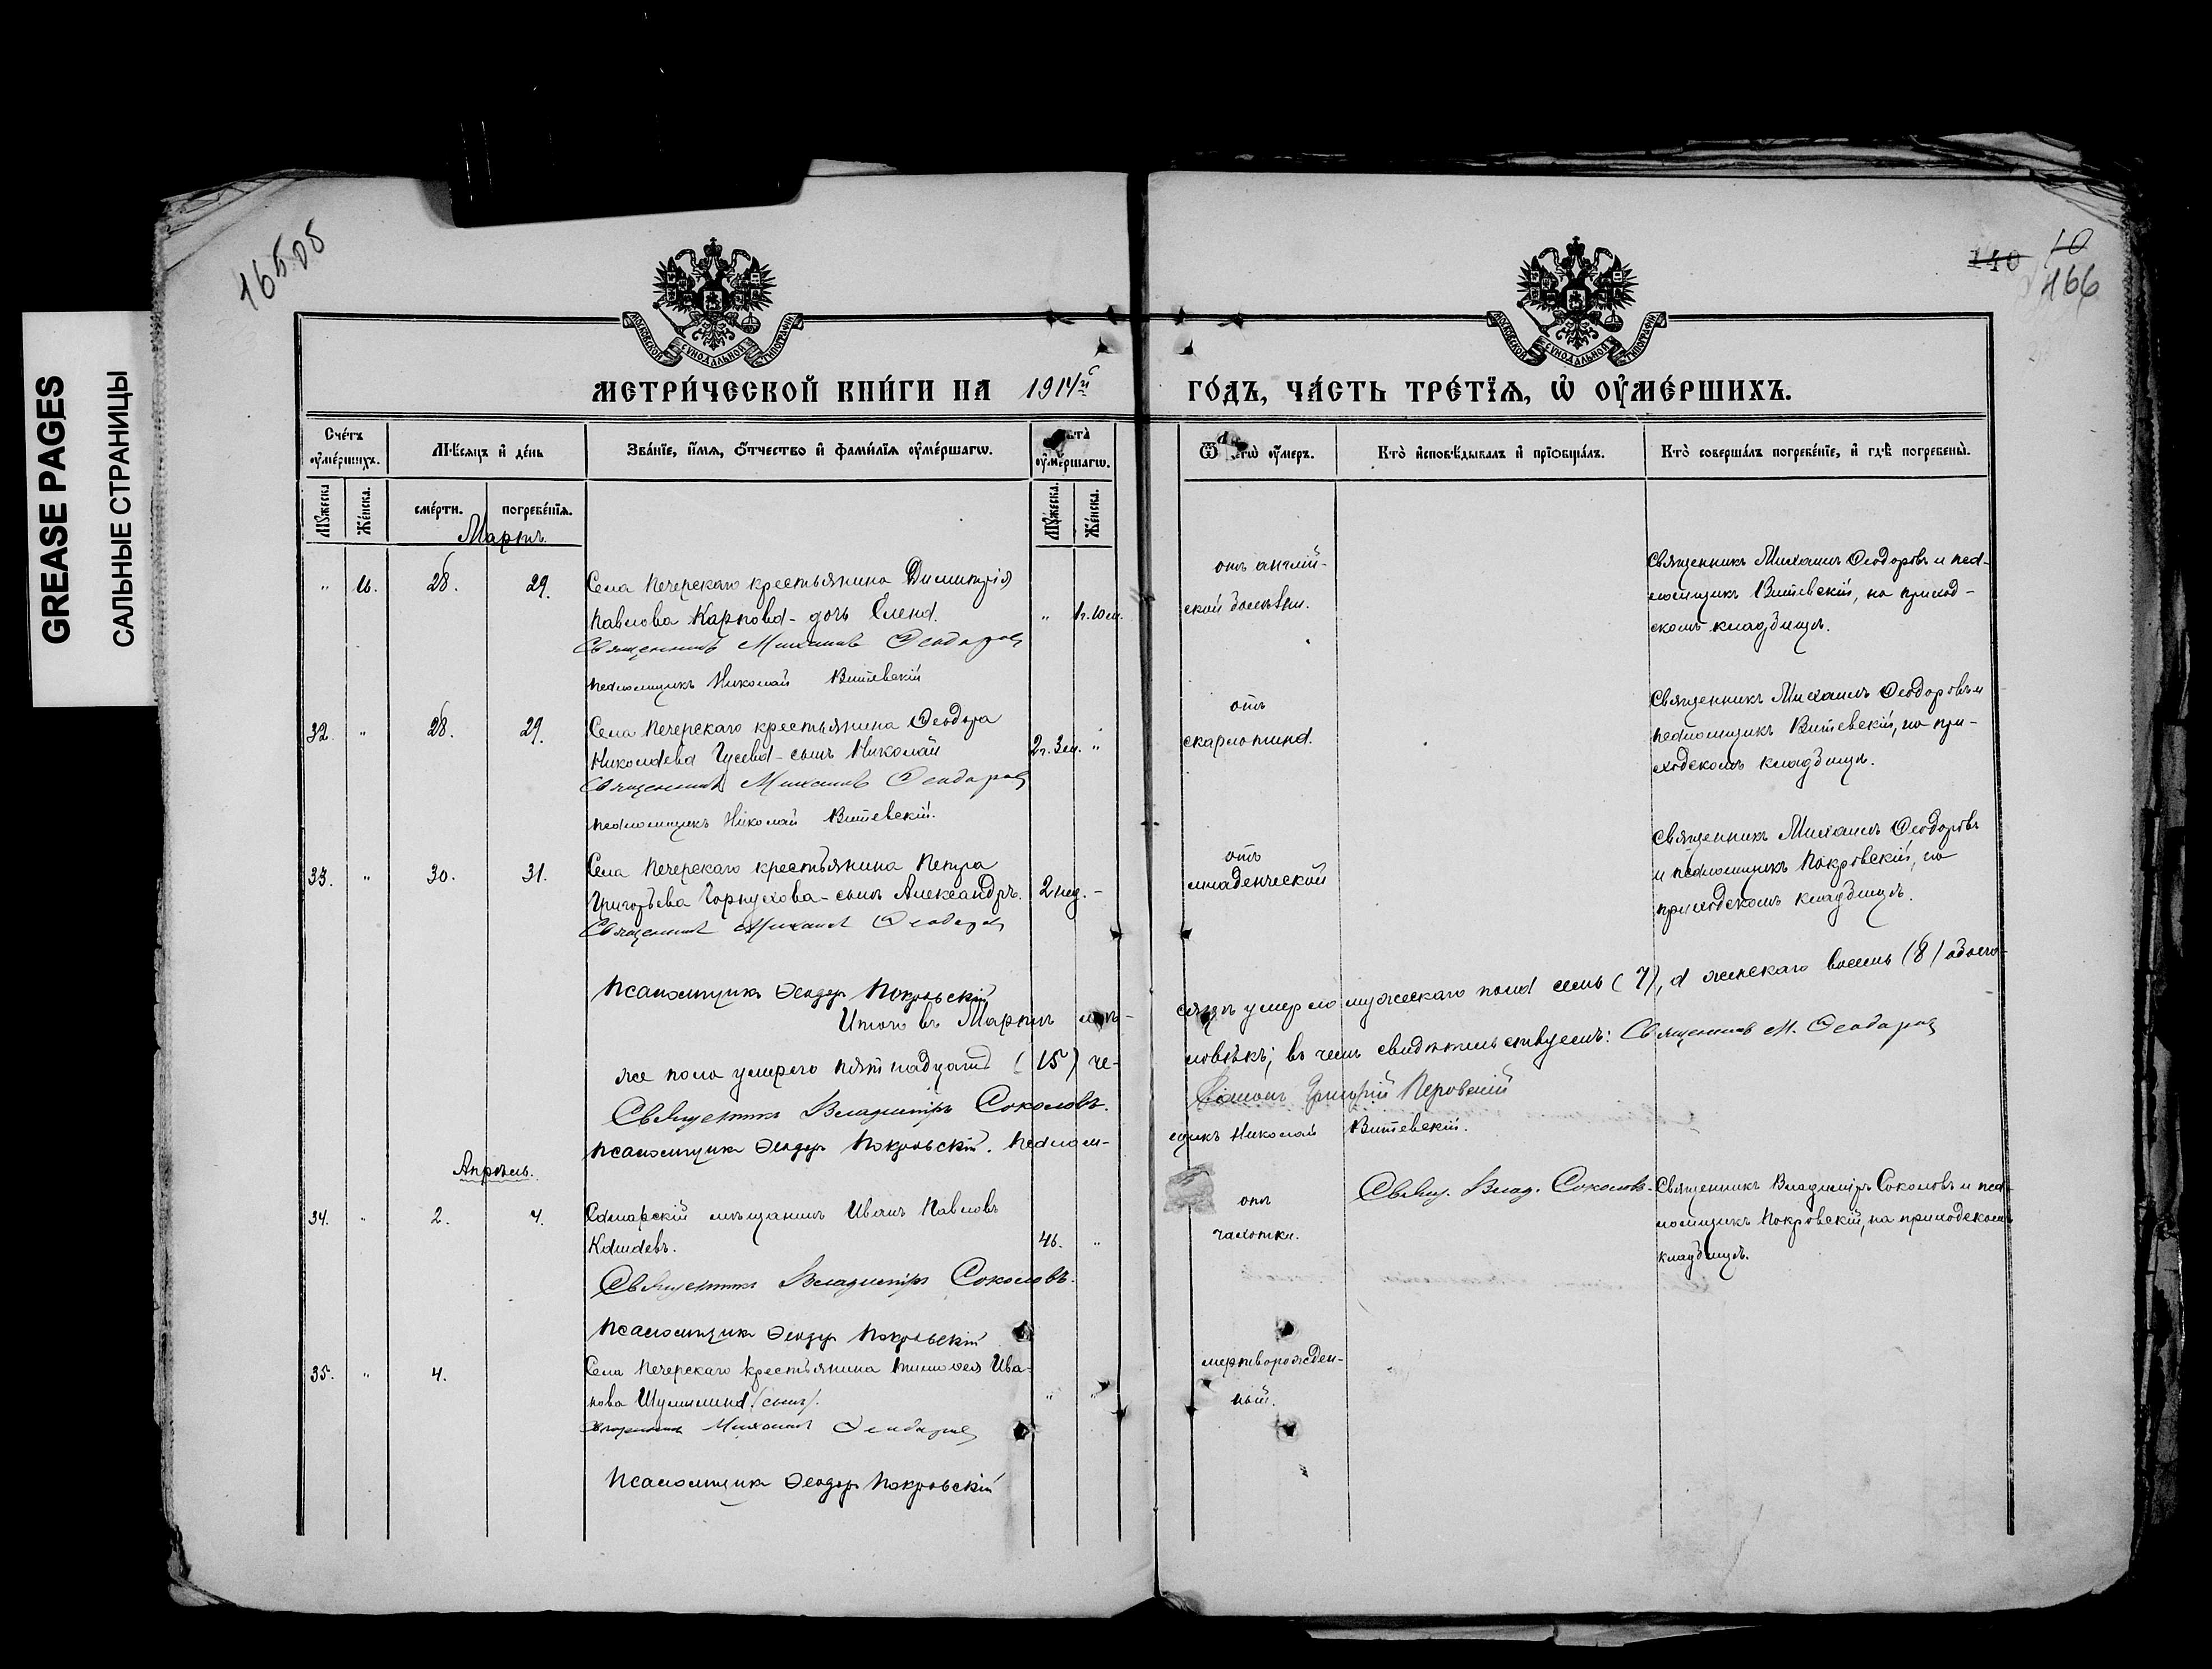 GREASE PAGES
САЛЬНЫЕ СТРАНИЦЫ
140 10
466
МОСКОВСКОЙ СѴНОДАЛЬНОЙ ТИПОГРАФІИ
МОСКОВСКОЙ СѴНОДАЛЬНОЙ ТИПОГРАФІИ
МЕТРИ́ЧЕСКОЙ КНИ́ГИ НА 1914й
ГО́ДЪ, ЧА́СТЬ ТРЕ́ТЇѦ, Ѡ҆ ОУ҆МЕ́РШИХЪ.
Сче́тъ оу҆ме́ршихъ.
Мѣ́сяцъ и҆ де́нь
Зва́нїе, и҆́мя, ѻ҆́тчество и҆ фами́лїя оу҆ме́ршагѡ.
Лѣта̀ оу҆ме́ршагѡ.
Ѿ чегѡ̀ оу҆́меръ.
Кто̀ и҆сповѣ́дывалъ и҆ прїѡбща́лъ.
Кто̀ соверша́лъ погребе́нїе, и҆ гдѣ̀ погребены̀.
Мꙋ́жеска
Же́нска.
сме́рти.
погребе́нїя.
Мꙋ́жеска.
Же́нска.
Мартъ.
" 16. 28. 29. Села Печерскаго крестьянина Димитрія
Павлова Карпова - дочь Елена. " 1г.10м.
Священникъ Михаилъ Ѳеодоровъ
Псаломщикъ Николай Витевскій
отъ англій-
ской болѣзни.
Священникъ Михаилъ Ѳеодоровъ и пса-
ломщикъ Витевскій, на приход-
скомъ кладбищѣ.
32. " 28. 29. Села Печерскаго крестьянина Ѳеодора
Николаева Гусева - сынъ Николай 2г. 3м. "
Священникъ Михаилъ Ѳеодоровъ
Псаломщикъ Николай Витевскій.
отъ
скарлатина.
Священникъ Михаилъ Ѳеодоровъ и
псаломщикъ Витевскій, на при-
ходскомъ кладбищѣ.
33. " 30. 31. Села Печерскаго крестьянина Петра
Григорьева Горнухова - сынъ Александръ. 2 нед. -
Священникъ Михаилъ Ѳеодоровъ
Псаломщикъ Ѳеодоръ Покровскій
отъ
младенческой
Священникъ Михаилъ Ѳеодоровъ
и псаломщикъ Покровскій, на
приходскомъ кладбищѣ.
Итого въ Мартѣ мѣ-
сяцѣ умерло мужескаго пола семь (7), а женскаго восемь (8) обоего-
же пола умерло пятнадцать (15) че-
ловѣкъ; въ чемъ свидѣтельствуемъ: Священникъ М. Ѳеодоровъ
Священникъ Владиміръ Соколовъ.
Діаконъ Григорій Перовскій
Псаломщикъ Ѳеодоръ Покровскій. Псалом-
щикъ Николай Витевскій.
Апрѣль.
34. " 2. 4. Самарскій мѣщанинъ Иванъ Павловъ
46. "
Священникъ Владиміръ Соколовъ.
Псаломщикъ Ѳеодоръ Покровскій
отъ
чахотки.
Свящ. Влад. Соколовъ.
Священникъ Владиміръ Соколовъ и пса-
ломщикъ Покровскій, на приходскомъ
кладбищѣ.
35. " 4. Села Печерскаго крестьянина Тимоѳея Ива-
нова Шумилина (сынъ). " "
Священникъ Михаилъ Ѳеодоровъ
Псаломщикъ Ѳеодоръ Покровскій
мертворожден-
ный.